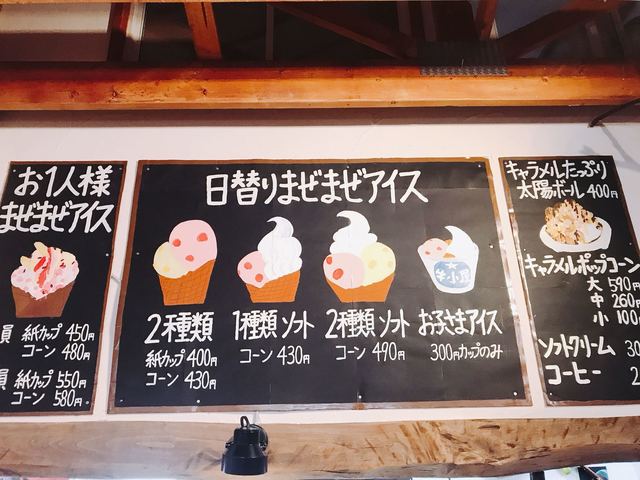 お1人様
まぜまぜアイス
員 紙カップ 450円
コーン 480円
員 紙カップ 550円
コーン 580円
日替りまぜまぜアイス
牛小屋
2種類
紙カップ 400円
コーン 430円
1種類 ソフト
コーン 430円
2種類 ソフト
コーン 490円
お子さまアイス
300円カップのみ
キャラメルたっぷり
太陽ボール 400円
キャラメルポップコーン
大 590円
中 260円
小 100
ソフトクリーム 30
コーヒー 2